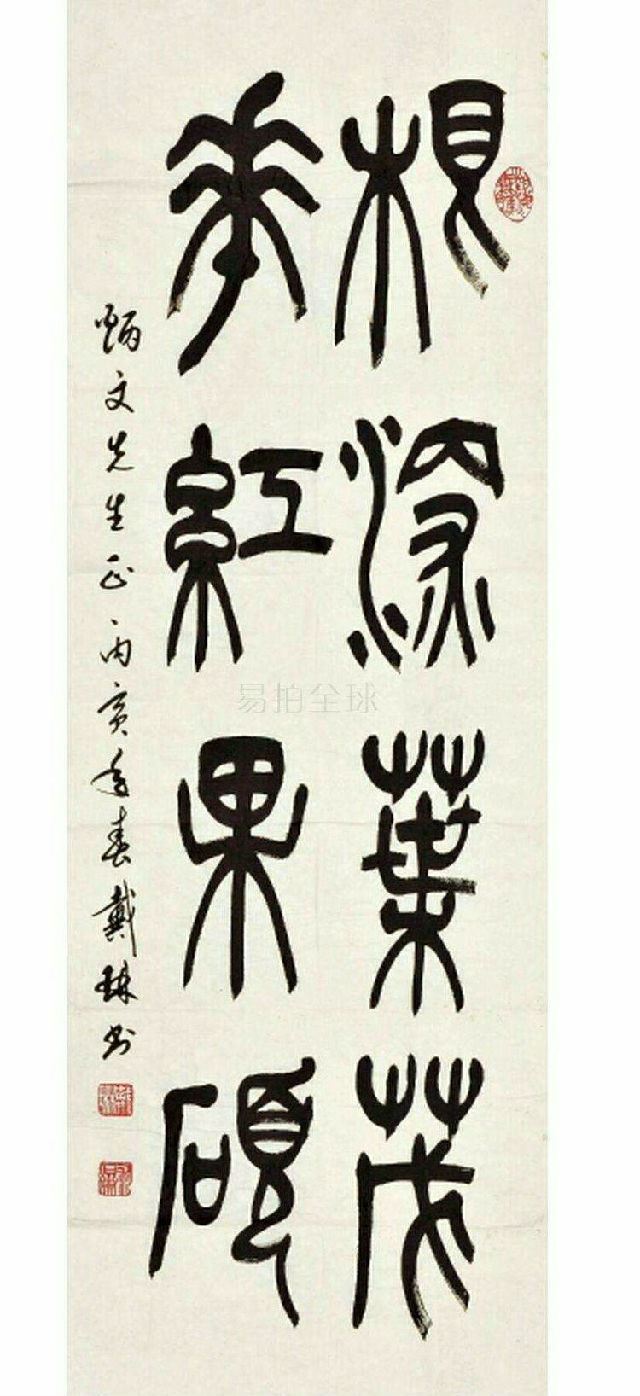 根深葉茂
華紅果碩
炳文先生正丙寅年春戴琳书
易拍全球